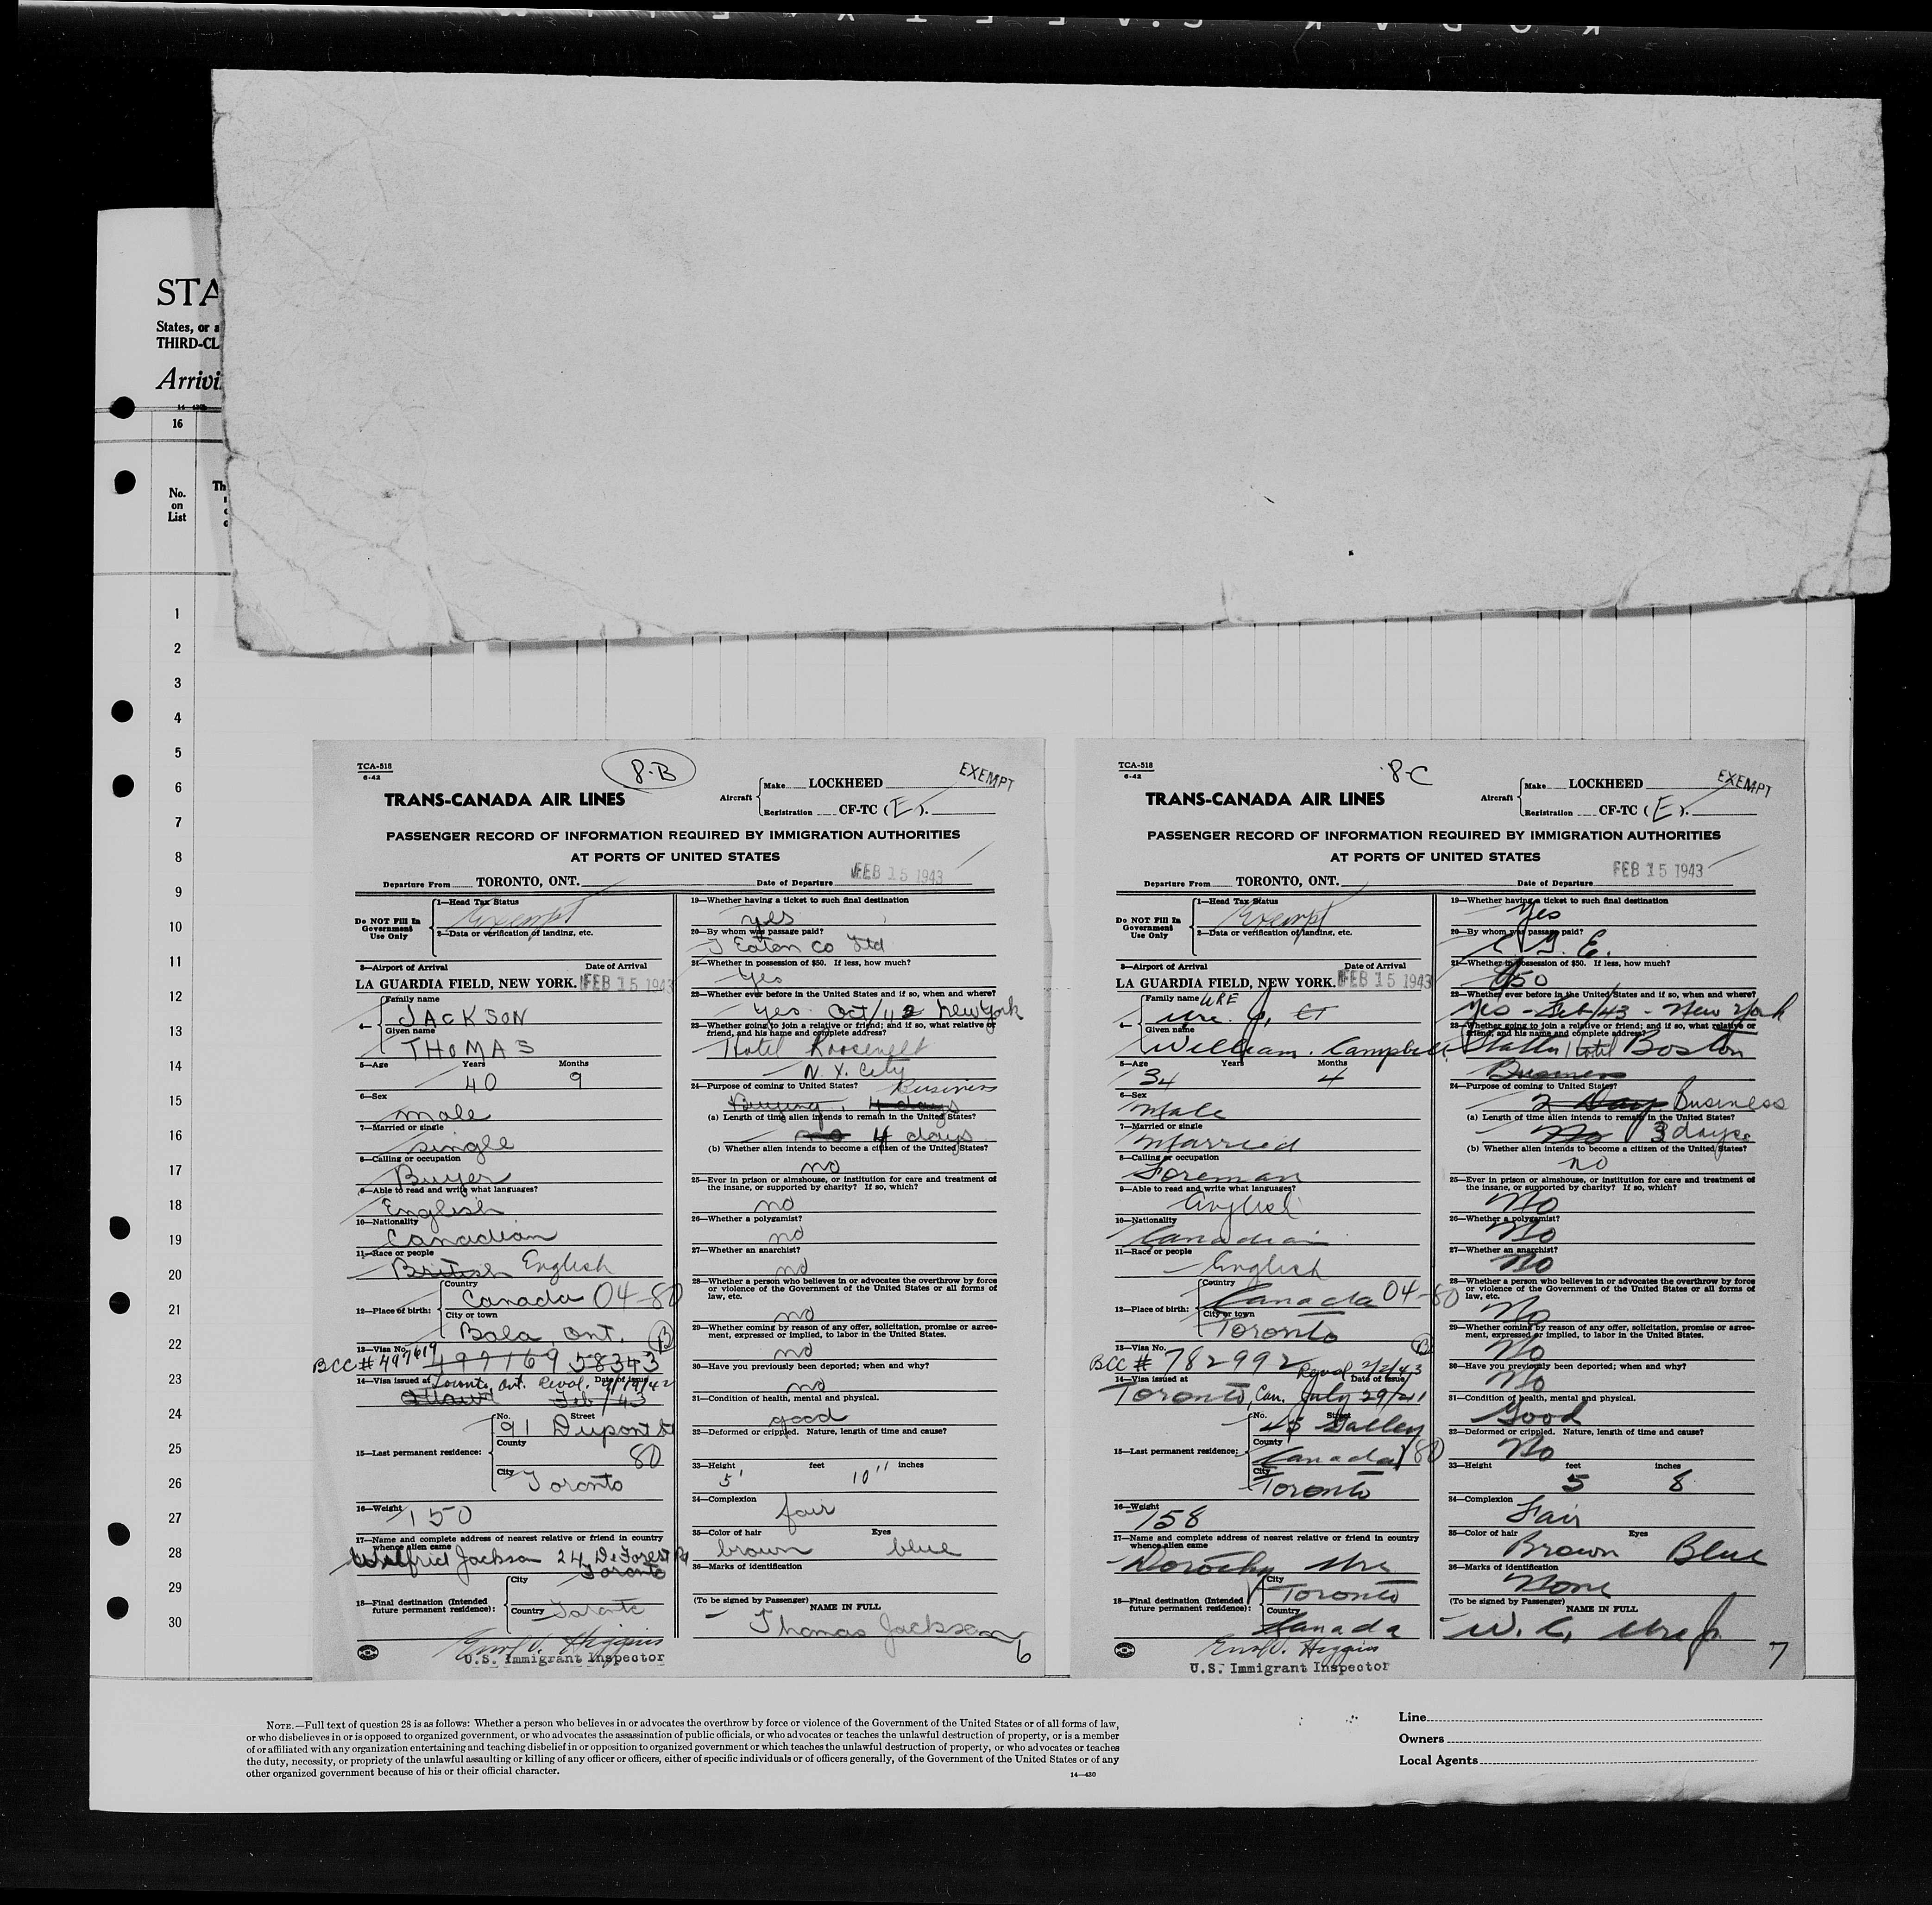 STA
States, or a
THIRD-CL
Arrivi
16
No.
on
List
Th
1
2
3
4
5
6
7
8
9
10
11
12
13
14
15
16
17
18
19
20
21
22
23
24
25
26
27
28
29
30
TCA-518
6-42
8-B
TRANS-CANADA AIR LINES
Aircraft
Make LOCKHEED
Registration CF-TC (E).
EXEMPT
PASSENGER RECORD OF INFORMATION REQUIRED BY IMMIGRATION AUTHORITIES
AT PORTS OF UNITED STATES
Departure From TORONTO, ONT. Date of Departure FEB 15 1943
Do NOT Fill In
Government
Use Only
1—Head Tax Status
Exempt
2—Data or verification of landing, etc.
3—Airport of Arrival Date of Arrival
LA GUARDIA FIELD, NEW YORK. FEB 15 1943
4— Family name
JACKSON
Given name
THOMAS
5—Age Years Months
40 9
6—Sex
male
7—Married or single
single
8—Calling or occupation
Buyer
9—Able to read and write what languages?
English
10—Nationality
Canadian
11—Race or people
British English
12—Place of birth:
Country
Canada 04-80
City or town
Bala, Ont.
B
13—Visa No.
BCC # 497619 497169 58343
14—Visa issued at Date of issue
Toronto, Ont. Reval. 9/19/42
Ottawa Feb/43
15—Last permanent residence:
No. Street
91 Dupont St
County
80
City
Toronto
16—Weight
150
17—Name and complete address of nearest relative or friend in country
whence alien came
Wilfrid Jackson 24 DeForest Rd
Toronto
18—Final destination (Intended
future permanent residence):
City
Country Toronto
Higgins
U.S. Immigrant Inspector
19—Whether having a ticket to such final destination
yes
20—By whom was passage paid?
T Eaton Co Ltd
21—Whether in possession of $50. If less, how much?
Yes
22—Whether ever before in the United States and if so, when and where?
Yes Oct/42 New York
23—Whether going to join a relative or friend; and if so, what relative or
friend, and his name and complete address?
Hotel Roosevelt
N.Y. City
24—Purpose of coming to United States? Business
Buying, 4 days
(a) Length of time alien intends to remain in the United States?
no 4 days
(b) Whether alien intends to become a citizen of the United States?
no
25—Ever in prison or almshouse, or institution for care and treatment of
the insane, or supported by charity? If so, which?
no
26—Whether a polygamist?
no
27—Whether an anarchist?
no
28—Whether a person who believes in or advocates the overthrow by force
or violence of the Government of the United States or all forms of
law, etc.
no
29—Whether coming by reason of any offer, solicitation, promise or agree-
ment, expressed or implied, to labor in the United States.
no
30—Have you previously been deported; when and why?
no
31—Condition of health, mental and physical.
good
32—Deformed or crippled. Nature, length of time and cause?
33—Height feet inches
5' 10"
34—Complexion
fair
35—Color of hair Eyes
brown blue
36—Marks of identification
(To be signed by Passenger)
NAME IN FULL
Thomas Jackson
6
TCA-518
6-42
8-C
TRANS-CANADA AIR LINES
Aircraft
Make LOCKHEED
Registration CF-TC (E).
EXEMPT
PASSENGER RECORD OF INFORMATION REQUIRED BY IMMIGRATION AUTHORITIES
AT PORTS OF UNITED STATES
Departure From TORONTO, ONT. Date of Departure FEB 15 1943
Do NOT Fill In
Government
Use Only
1—Head Tax Status
Exempt
2—Data or verification of landing, etc.
3—Airport of Arrival Date of Arrival
LA GUARDIA FIELD, NEW YORK. FEB 15 1943
4— Family name URE
Ure. Jr,
Given name
William. Campbell
5—Age Years Months
34 4
6—Sex
Male
7—Married or single
Married
8—Calling or occupation
Foreman
9—Able to read and write what languages?
English
10—Nationality
Canadian
11—Race or people
English
12—Place of birth:
Country
Canada 04-80
City or town
Toronto
B
13—Visa No.
BCC # 782992 Reval 2/2/43
14—Visa issued at Date of issue
Toronto, Can. July 29/41
15—Last permanent residence:
No. Street
County
Canada 80
City
Toronto
16—Weight
158
17—Name and complete address of nearest relative or friend in country
whence alien came
Dorothy Ure
18—Final destination (Intended
future permanent residence):
City
Toronto
Country
Canada
Higgins
U.S. Immigrant Inspector
19—Whether having a ticket to such final destination
Yes
20—By whom was passage paid?
C. G. E.
21—Whether in possession of $50. If less, how much?
$50
22—Whether ever before in the United States and if so, when and where?
Yes - Feb/43 - New York
23—Whether going to join a relative or friend; and if so, what relative or
friend, and his name and complete address?
Statler Hotel Boston
Business
24—Purpose of coming to United States?
2 Days Business
(a) Length of time alien intends to remain in the United States?
No 3 days
(b) Whether alien intends to become a citizen of the United States?
no
25—Ever in prison or almshouse, or institution for care and treatment of
the insane, or supported by charity? If so, which?
No
26—Whether a polygamist?
No
27—Whether an anarchist?
No
28—Whether a person who believes in or advocates the overthrow by force
or violence of the Government of the United States or all forms of
law, etc.
No
29—Whether coming by reason of any offer, solicitation, promise or agree-
ment, expressed or implied, to labor in the United States.
No
30—Have you previously been deported; when and why?
No
31—Condition of health, mental and physical.
Good
32—Deformed or crippled. Nature, length of time and cause?
No
33—Height feet inches
5 8
34—Complexion
Fair
35—Color of hair Eyes
Brown Blue
36—Marks of identification
None
(To be signed by Passenger)
NAME IN FULL
W. C. Ure Jr.
7
NOTE.—Full text of question 28 is as follows: Whether a person who believes in or advocates the overthrow by force or violence of the Government of the United States or of all forms of law,
or who disbelieves in or is opposed to organized government, or who advocates the assassination of public officials, or who advocates or teaches the unlawful destruction of property, or is a member
of or affiliated with any organization entertaining and teaching disbelief in or opposition to organized government or which teaches the unlawful destruction of property, or who advocates or teaches
the duty, necessity, or propriety of the unlawful assaulting or killing of any officer or officers, either of specific individuals or of officers generally, of the Government of the United States or of any
other organized government because of his or their official character.
14—430
Line
Owners
Local Agents